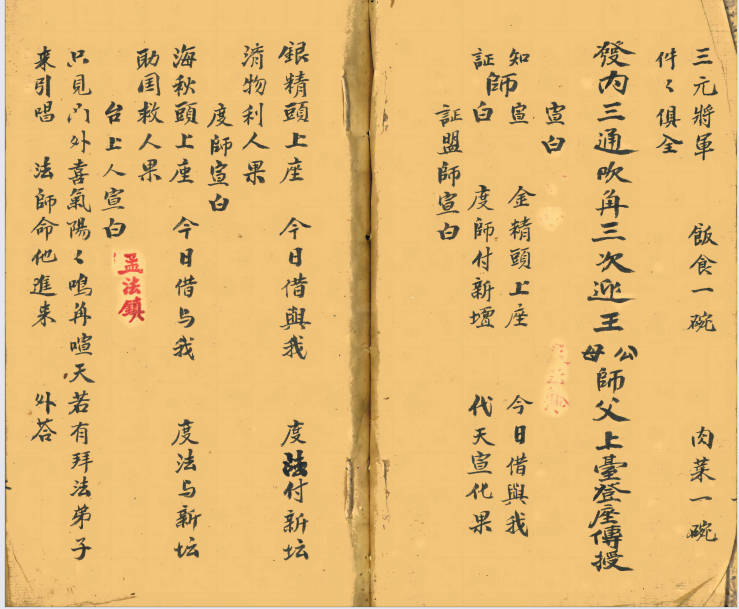 三元將軍 飯食一碗 肉菜一碗
件〻俱全
發内三通吹角三次迎王公母師父上臺登座傳授
宣白
知証師宣白
金精頭上座 今日借與我
度師付新壇 代天宣化果
証盟師宣白
銀精頭上座 今日借與我 度法付新坛
済物利人果
度師宣白
海秋頭上座 今日借与我 度法与新坛
助国救人果
台上人宣白
孟法鎮
只見门外喜氣陽〻鳴角喧天若有拜法弟子
来引唱 法師命他進来 外荅